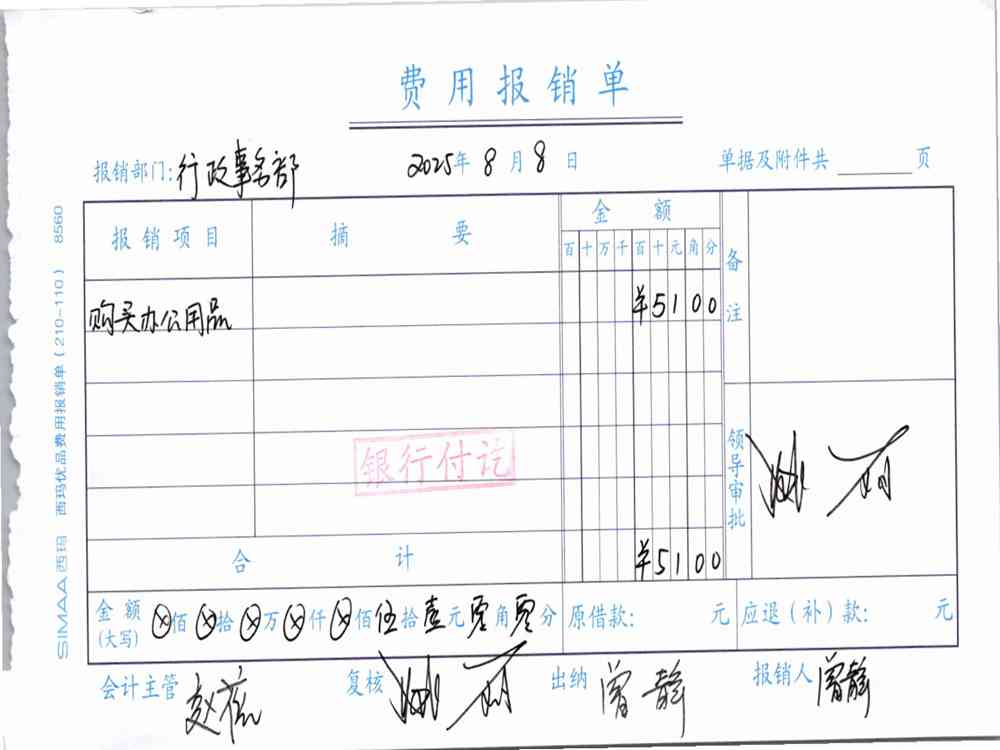 费用报销单
报销部门:行政事务部 2025年8月8日 单据及附件共 页
报销项目 摘要 金额 备注
百十万千百十元角分
购买办公用品 ¥5100
银行付讫
领导审批
合计 ¥5100
金额(大写) ⊗佰⊗拾⊗万⊗仟⊗佰伍拾壹元零角零分 原借款: 元 应退(补)款: 元
会计主管 复核 出纳 曾静 报销人 曾静
SIMAA西玛 西玛优品费用报销单(210-110) 8560